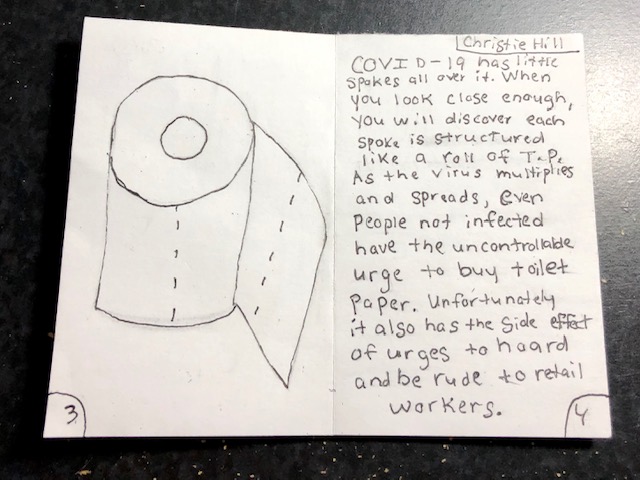 Christie Hill
COVID-19 has little
spokes all over it. When
you look close enough,
you will discover each
spoke is structured
like a roll of T.P.
As the virus multiplies
and spreads, even
people not infected
have the uncontrollable
urge to buy toilet
paper. Unfortunately
it also has the side effect
of urges to hoard
and be rude to retail
workers.
3
4